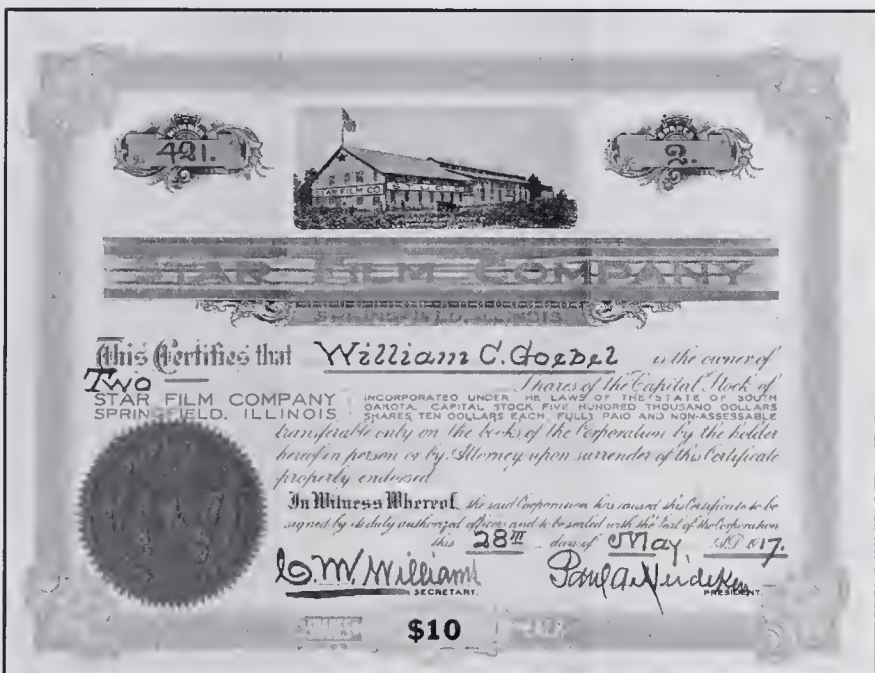 No. 421.
SHARES
No. 2.
STAR FILM CO.
STAR FILM COMPANY
SPRINGFIELD, ILLINOIS.
This Certifies that William C. Goebel is the owner of
Two Shares of the Capital Stock of
STAR FILM COMPANY
SPRINGFIELD, ILLINOIS
INCORPORATED UNDER HE LAWS OF THE STATE OF SOUTH
DAKOTA. CAPITAL STOCK FIVE HUNDRED THOUSAND DOLLARS
SHARES TEN DOLLARS EACH, FULLY PAID AND NON-ASSESSABLE
transferable only on the books of the Corporation by the holder
hereof in person or by Attorney upon surrender of this Certificate
properly endorsed
In Witness Whereof, the said Corporation has caused this Certificate to be
signed by its duly authorized officers and to be sealed with the Seal of the Corporation
this 28TH day of May A.D. 1917.
C. W. Williams
SECRETARY.
Paul A.
PRESIDENT.
SHARES $10 EACH